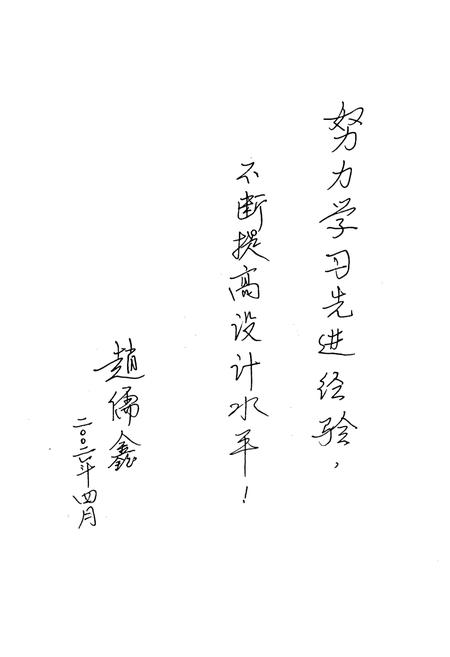 努力学习先进经验，
不断提高设计水平！
趙儒鑫
二〇〇六年四月